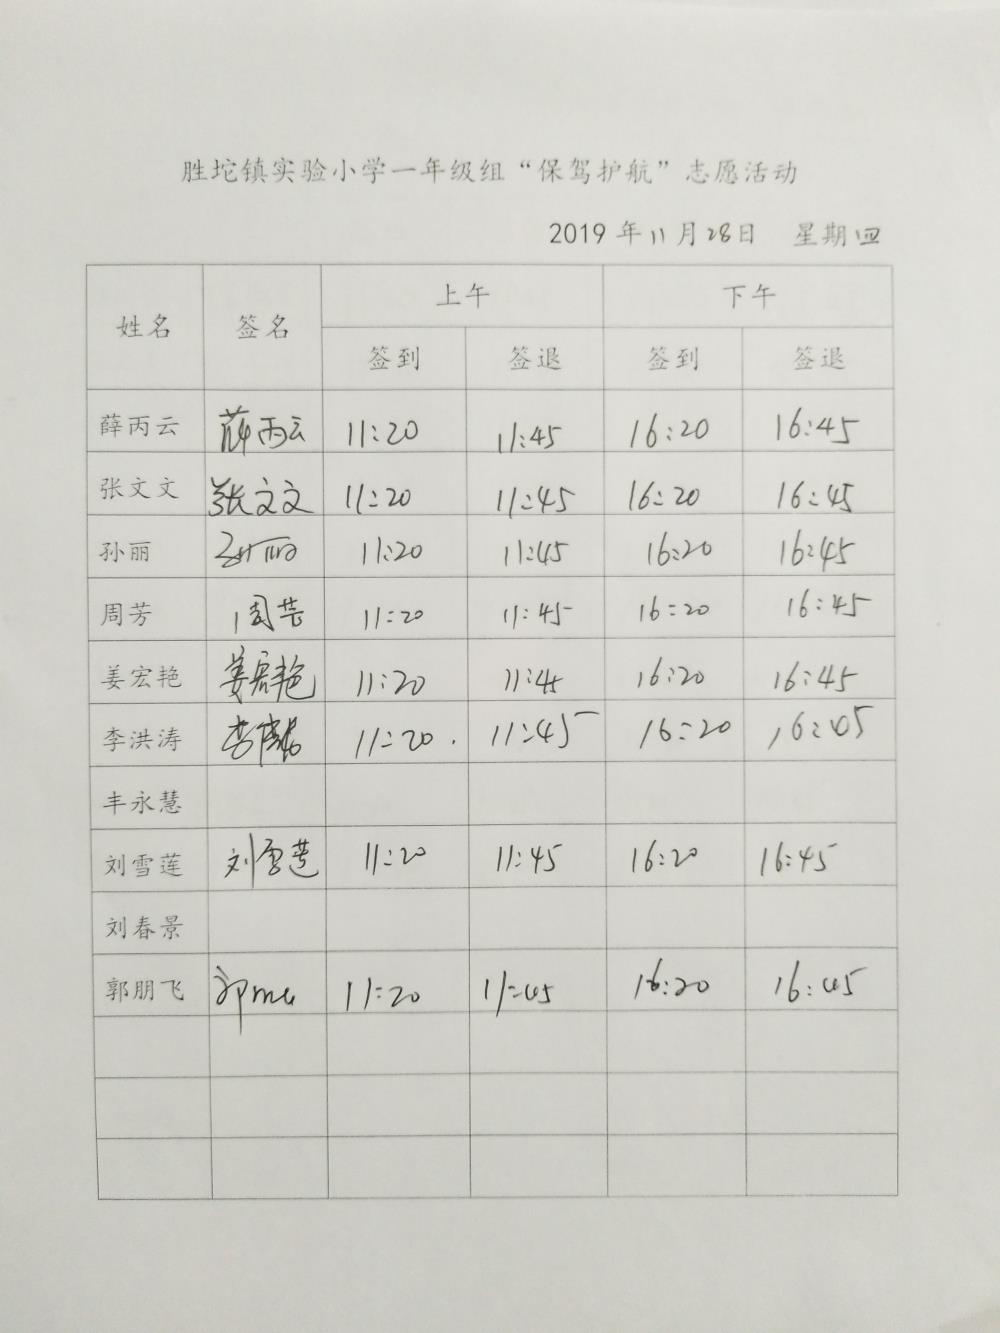 胜坨镇实验小学一年级组“保驾护航”志愿活动
2019年11月28日 星期四
姓名 签名 上午 下午
签到 签退 签到 签退
薛丙云 薛丙云 11:20 11:45 16:20 16:45
张文文 张文文 11:20 11:45 16:20 16:45
孙丽 孙丽 11:20 11:45 16:20 16:45
周芳 周芸 11:20 11:45 16:20 16:45
姜宏艳 姜宏艳 11:20 11:45 16:20 16:45
李洪涛 11:20. 11:45 16:20 16:45
丰永慧
刘雪莲 刘雪莲 11:20 11:45 16:20 16:45
刘春景
郭朋飞 11:20 11:45 16:20 16:45